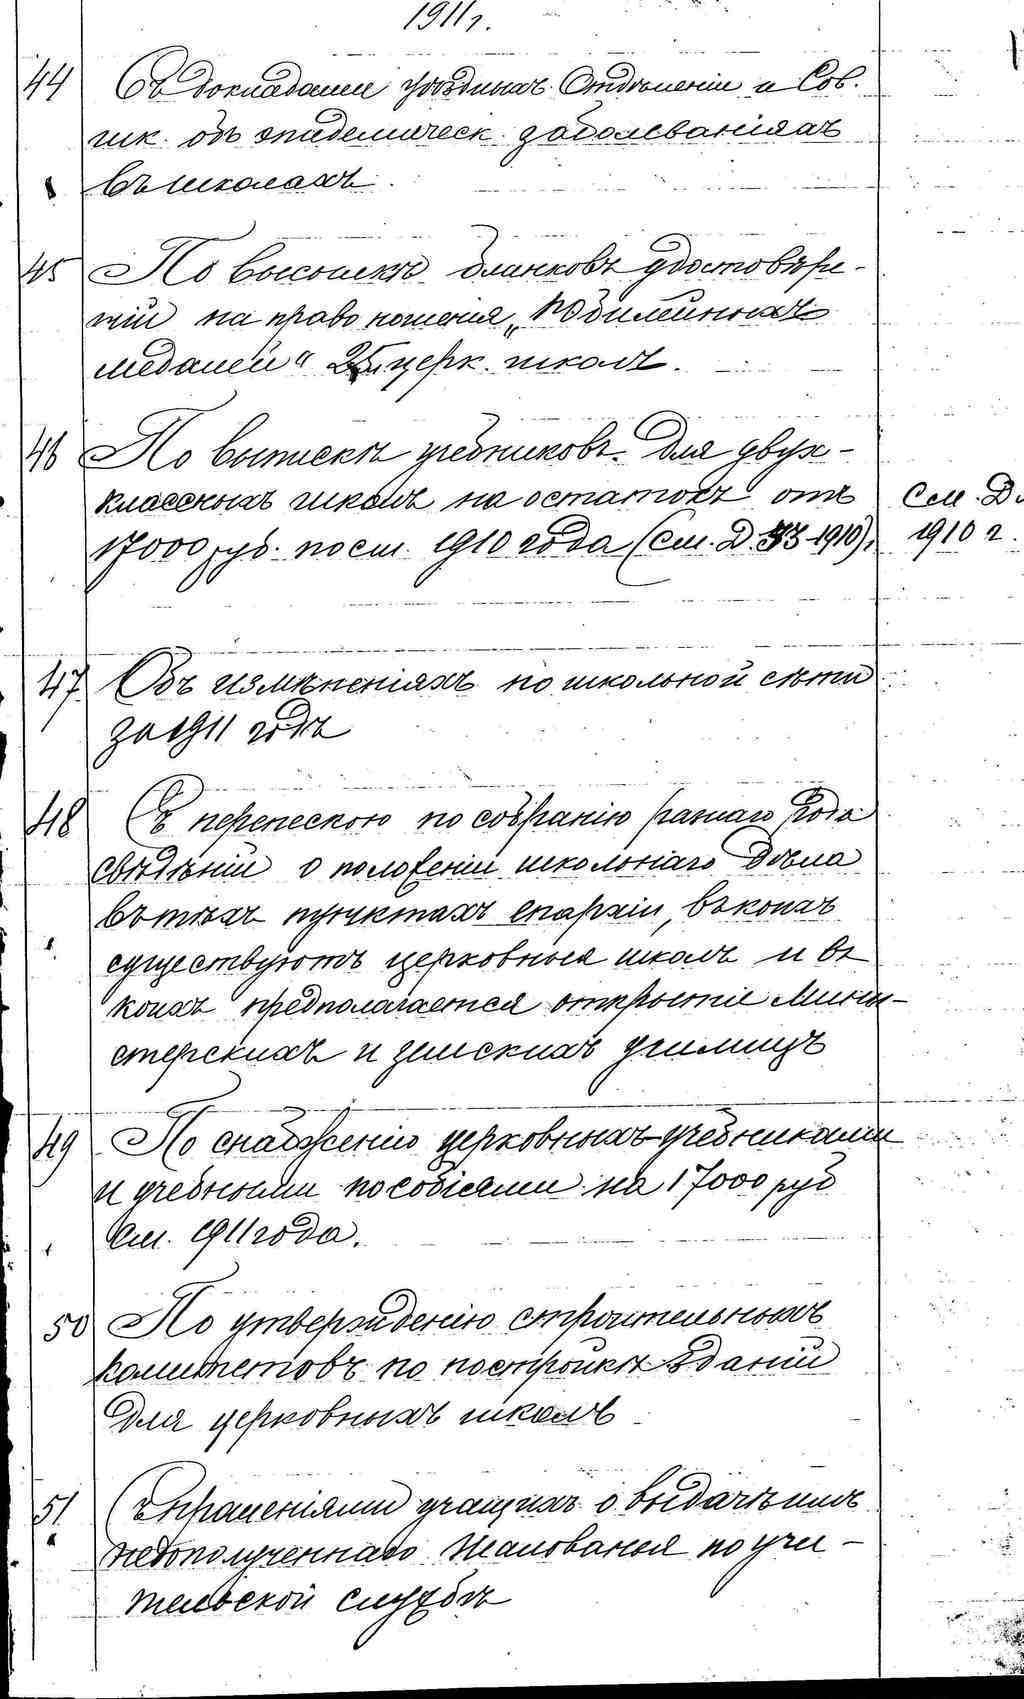 1911 г.
44 Съ докладами уѣздныхъ Отдѣленій и Сов.
шк. объ эпидемическ. заболѣваніяхъ
въ школахъ.
45 По высылкѣ бланковъ удостовѣре-
ній на право ношенія „Юбилейныхъ
медалей“ 25 л. церк. школъ.
46 По выпискѣ учебниковъ для двух-
классныхъ школъ на остатокъ отъ
17000 руб. по см. 1910 года (см. Д. 33-1910). См. Д.
1910 г.
47 Объ измѣненіяхъ по школьной сѣти
за 1911 годъ
48 Съ перепескою по собранію разнаго рода
свѣдѣній о положеніи школьнаго дѣла
въ тѣхъ пунктахъ епархіи, въ коихъ
существуютъ церковныя школы и въ
коихъ предполагается открытіе Мини-
стерскихъ и земскихъ училищъ
49 По снабженію церковныхъ учебниками
и учебными пособіями на 17000 руб
см. 1911 года.
50 По утвержденію строительныхъ
комитетовъ по постройкѣ зданій
для церковныхъ школъ
51 Съ прошеніями учащихъ о выдачѣ имъ
недополученнаго жалованья по учи-
тельской службѣ